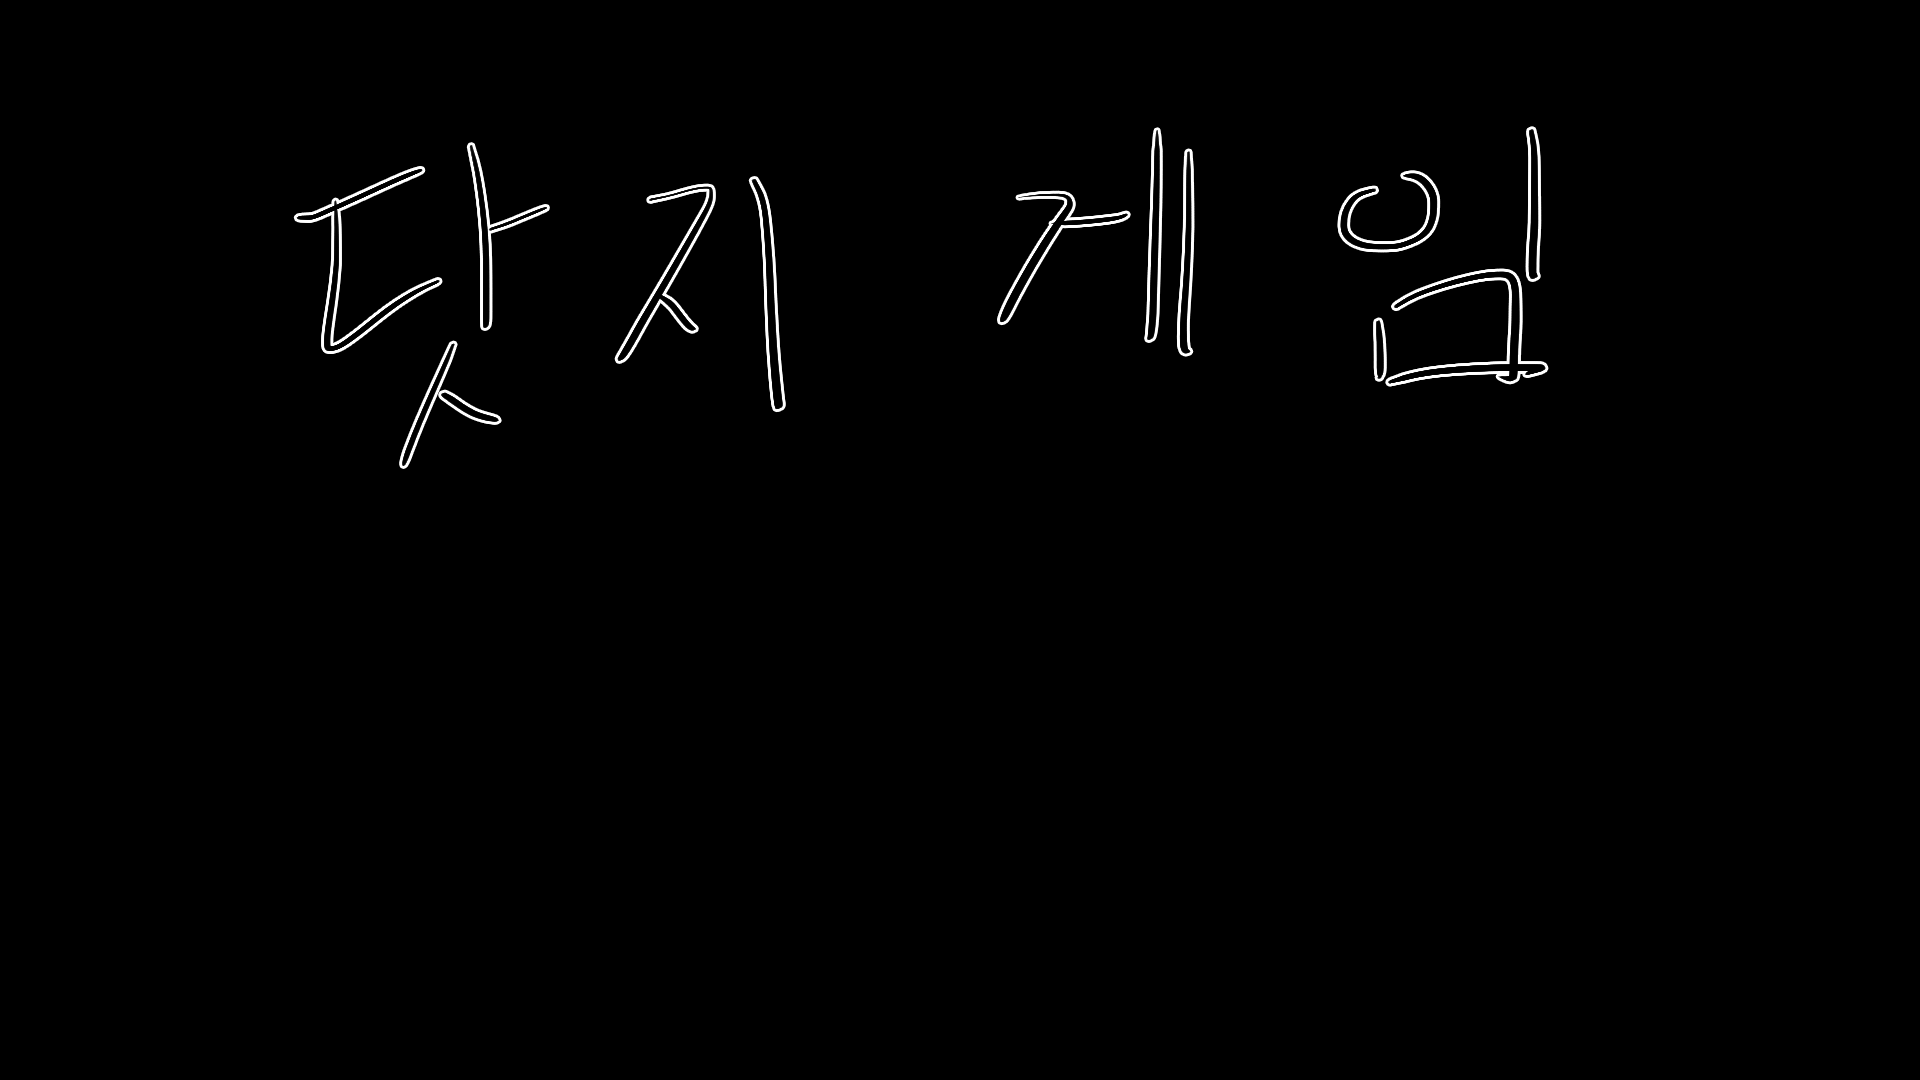 닷지 게임